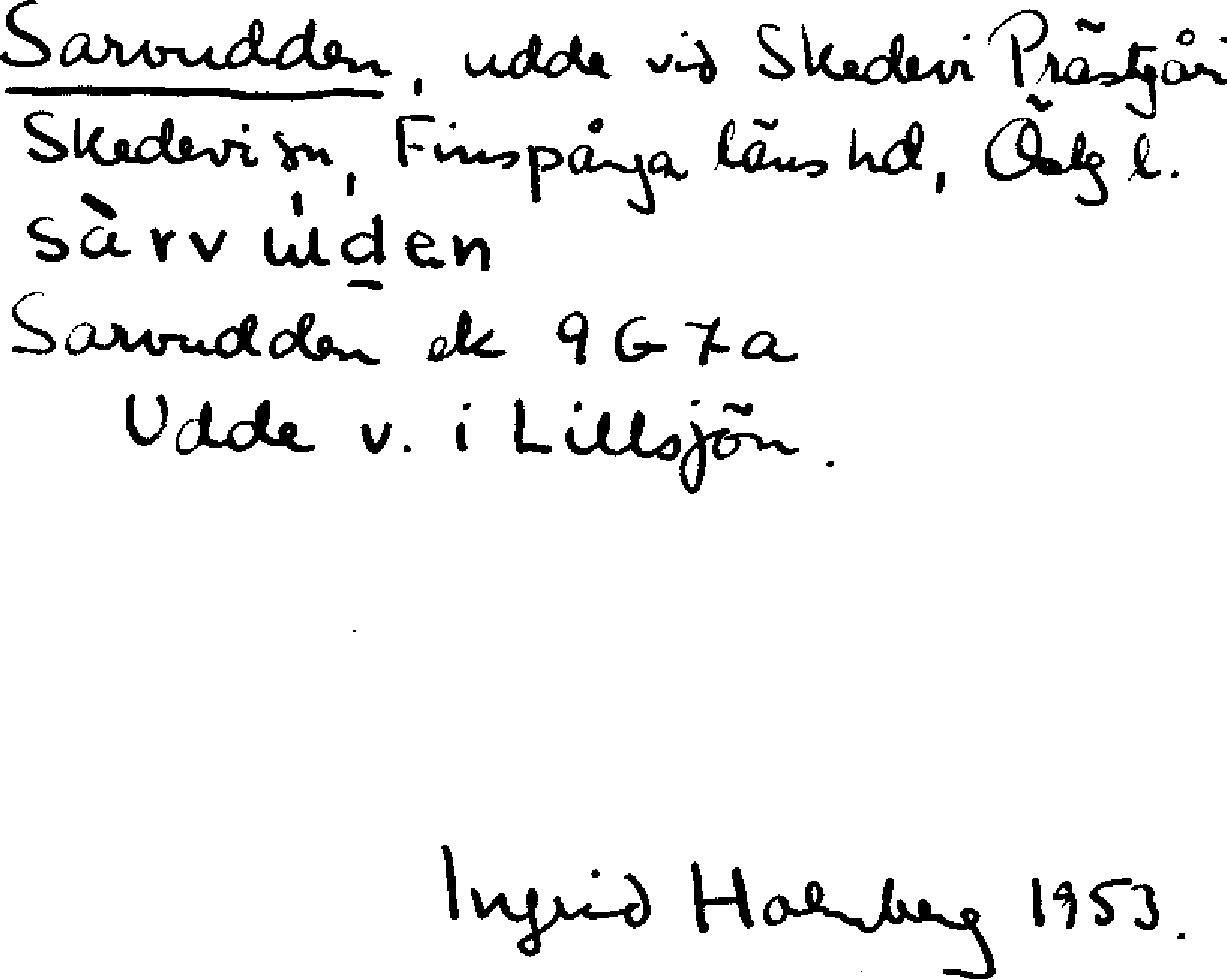 Sarvudden, udde vid Skedevi Prästgår
Skedevi sn, Finspånga läns hd, Östg l.
sàrv ùden
Sarvudden ek 9G7a
Udde v. i Lillsjön.
Ingrid Holmberg 1953.